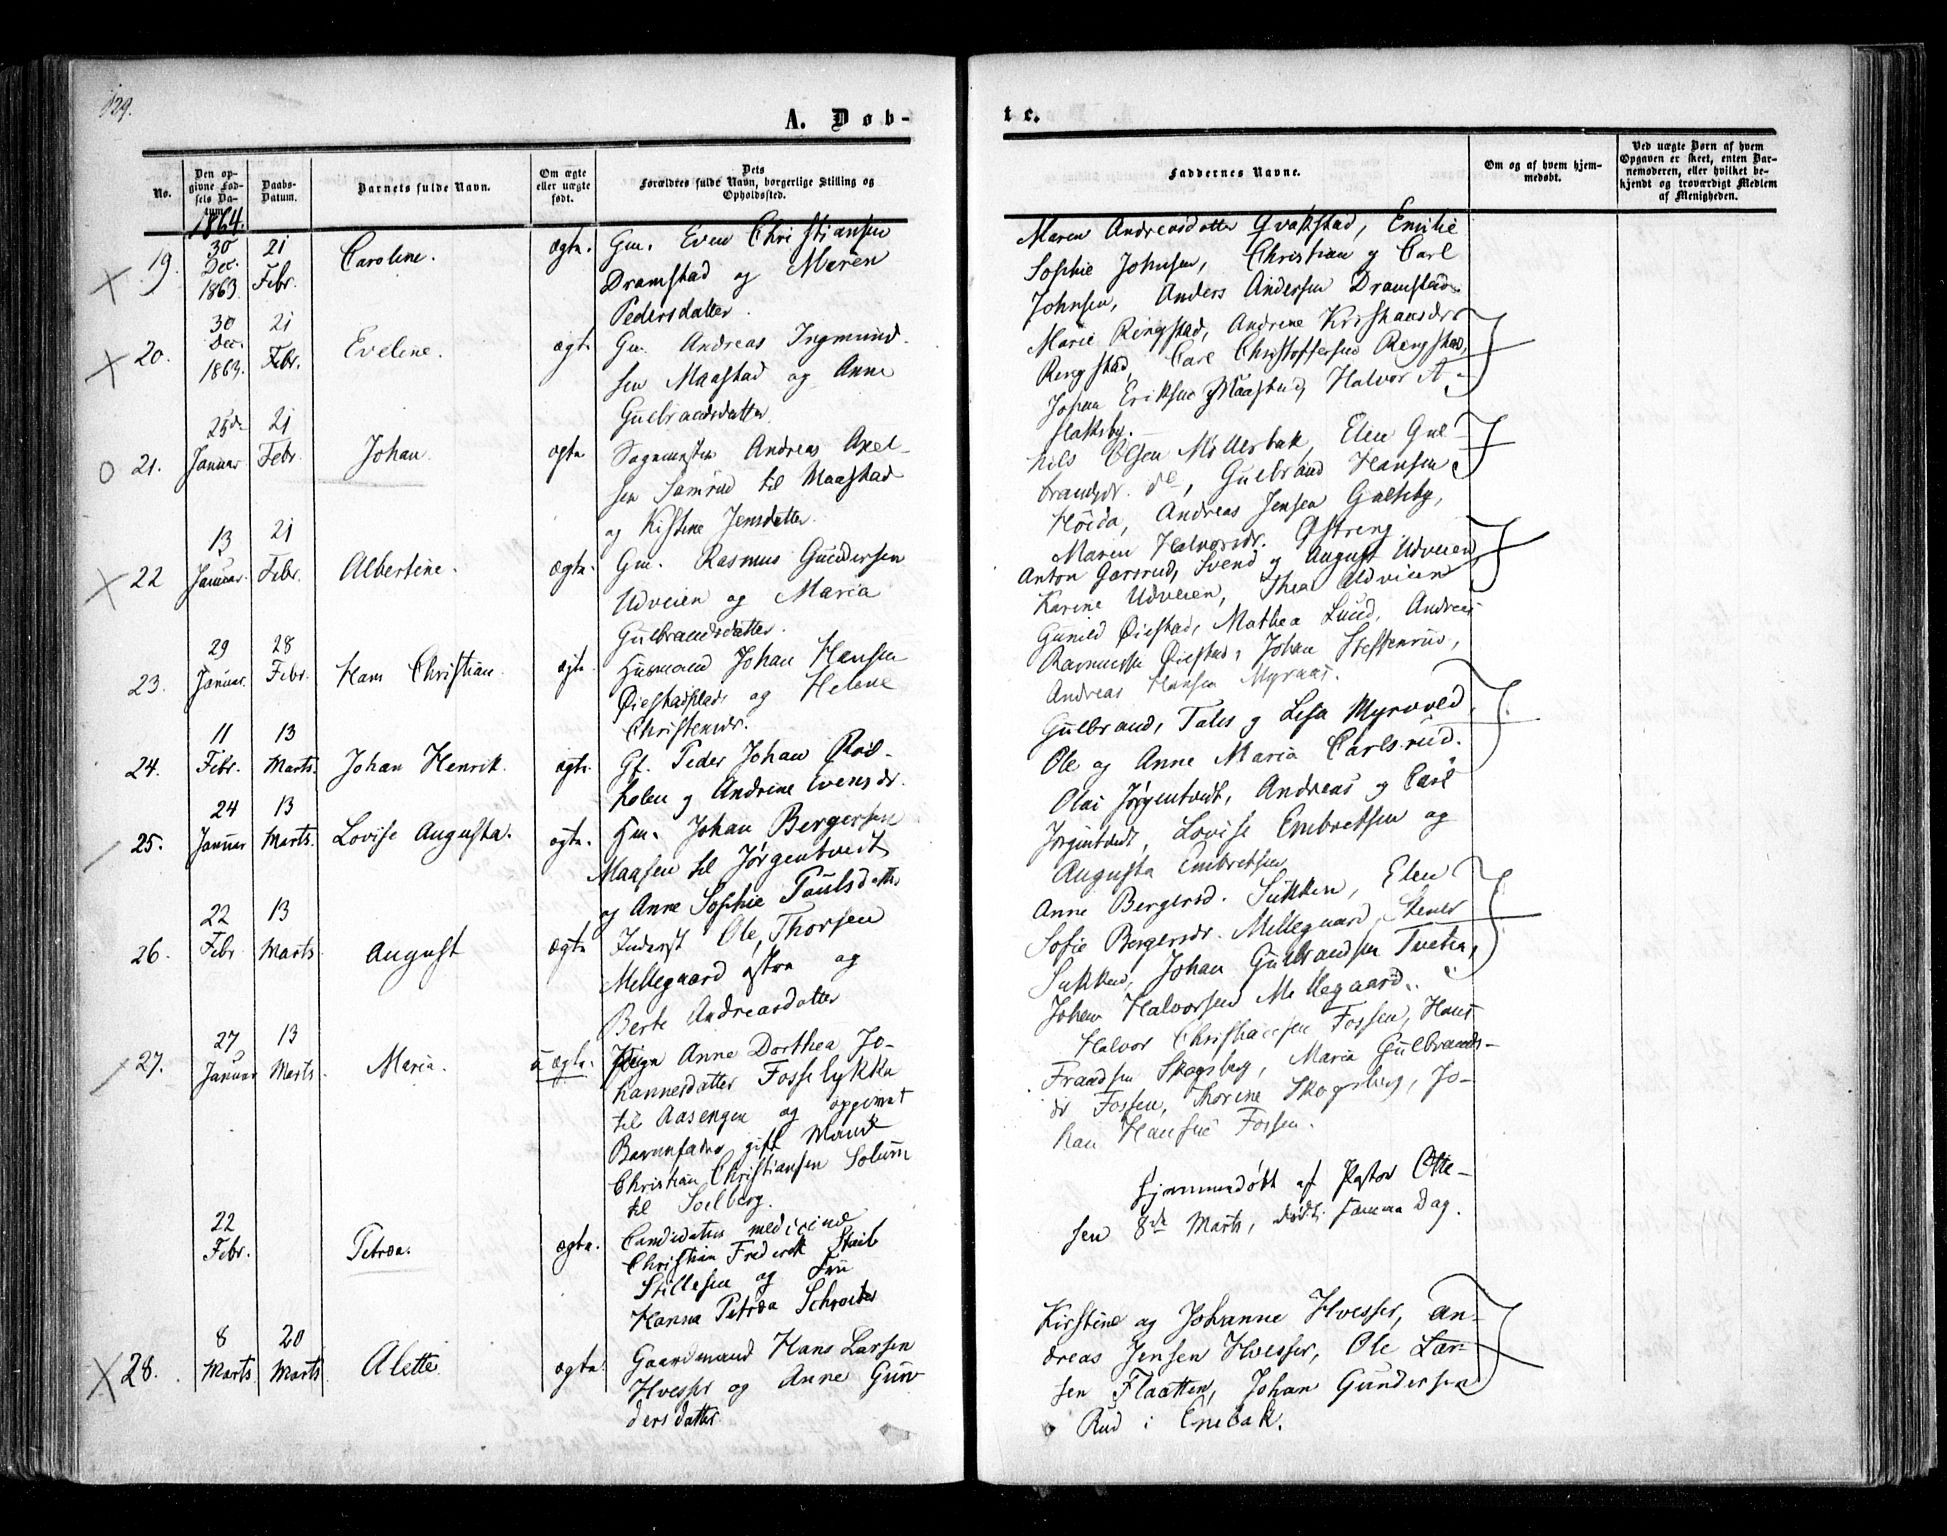 129.
A. Døb-
te.
No.
Den op-
givne Fød-
sels Da-
tum.
Daabs-
Datum.
Barnets fulde Navn.
Om ægte
eller uægte
født.
Dets
Forældres fulde Navn, borgerlige Stilling og
Opholdssted.
Faddernes Navne.
Om og af hvem hjem-
medøbt.
Ved uægte Børn af hvem
Opgaven er skeet, enten Bar-
nemoderen, eller hvilket be-
kjendt og troværdigt Medlem
af Menigheden.
1864.
19.
30
Dec.
1863.
21
Febr.
Caroline.
ægte.
Gm. Even Christiansen
Dramstad og Maren
Pedersdatter.
Maren Andreasdatter Qvakstad, Emilie
Sophie Johnsen, Christian og Carl
Johnsen, Anders Andersen Dramstad
20.
30
Dec.
1863.
21
Febr.
Eveline.
ægte
Gm. Andreas Ingmund-
sen Maastad og Anne
Gulbrandsdatter
Marie Ringstad, Andrine Kristiansdr
Ringstad, Carl Christoffersen Ringstad,
Johan Eriksen Maastad, Halvor A-
slaksby.
21.
25de
Januar
21
Febr
Johan.
ægte
Sagmester Andreas Axel-
sen Samrud til Maastad
og Kistine Jensdatter.
Nils Olsen Møllerbak, Elen Gul-
brandsdr. do, Gulbrand Hansen
Høida, Andreas Jensen Galsby,
Maren Halvorsdr. Østreng
22
13
Januar.
21
Febr.
Albertine.
ægte.
Gm. Rasmus Gundersen
Udveien og Maria
Gulbrandsdatter.
Anton Garsrud, Svend og August Udveien,
Karine Udveien, Thea Udveien
23.
29
Januar.
28
Febr.
Hans Christian
ægte.
Husmand Johan Hansen
Øiestadplads og Helene
Christensdr.
Gunild Øiestad, Mathea Lund, Andreas
Rasmussen Øiestad, Johan Steffenrud,
Andreas Hansen Myraas.
24.
11
Febr.
13
Marts.
Johan Henrik
ægte.
Gf. Peder Johan Røi-
holen og Andrine Evensdr.
Gulbrand, Tales og Lisa Myrvold,
Ole og Anne Maria Carlsrud.
25.
24
Januar
13
Marts.
Lovise Augusta.
ægte.
Hm. Johan Bergersen
Maasen til Jørgentvedt
og Anne Sophie Paulsdatter
Olai Jørgentvedt, Andreas og Carl
Jørgentvedt, Lovise Embretsen og
Augusta Embretsen
26.
22
Febr
13
Marts.
August
ægte
Inderst Ole Thorsen
Mellegaard østre og
Berte Andreasdatter
Anne Bergersd. Sukken, Elen
Sofie Bergersdr. Mellegaard, Stener
Sukken, Johan Gulbrandsen Tveten,
Johan Halvorsen Mellegaard.
27.
27
Januar
13
Marts.
Maria.
uægte.
Pige Anne Dorthea Jo-
hannesdatter Fosselykka
til Aasengen og opgivet
Barnefader gift Mand
Christian Christiansen Solum
til Solberg.
Halvor Christiansen Fossen, Hans
Frandsen Skogsberg, Maria Gulbrands-
dr Fossen, Thorine Skogsberg, Jo-
han Hansen Fossen.
22
Febr.
Petrea.
ægte.
Candidatus medicinæ
Christian Frederik Staib
Stillesen og Fru
Hanna Petrea Schroeter
Hjemmedøbt af Pastor Otte-
sen 8de Marts, døde samme Dag.
28.
8
Marts
20
Marts
Alette
ægte.
Gaardmand Hans Larsen
Hvesser og Anne Gun-
dersdatter
Kirstine og Johanne Hvesser, An-
dreas Jensen Hvesser, Ole Lar-
sen Flaatten, Johan Gundersen
Rud i Enebak.